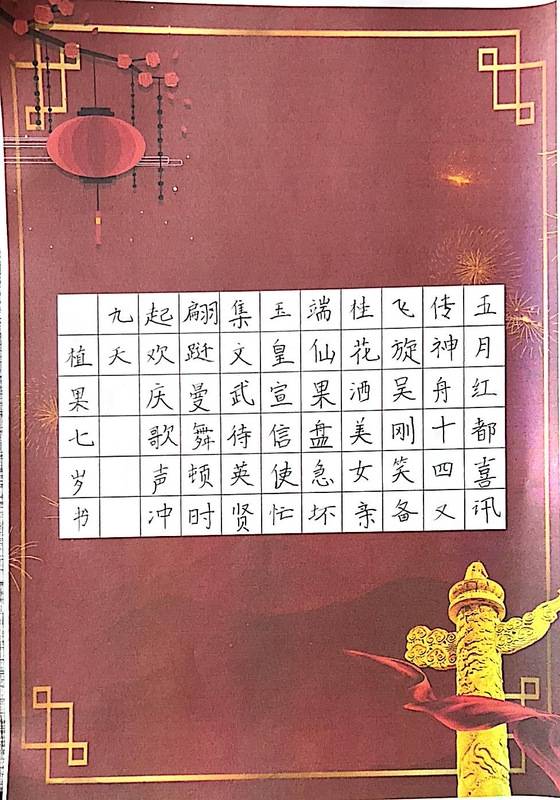 五月红都喜讯
传神舟十四又
飞旋吴刚笑备
桂花酒美女亲
端仙果盘急坏
玉皇宣信使忙
集文武待英贤
翩跹曼舞顿时
起欢庆歌声冲
九天
植果七岁书